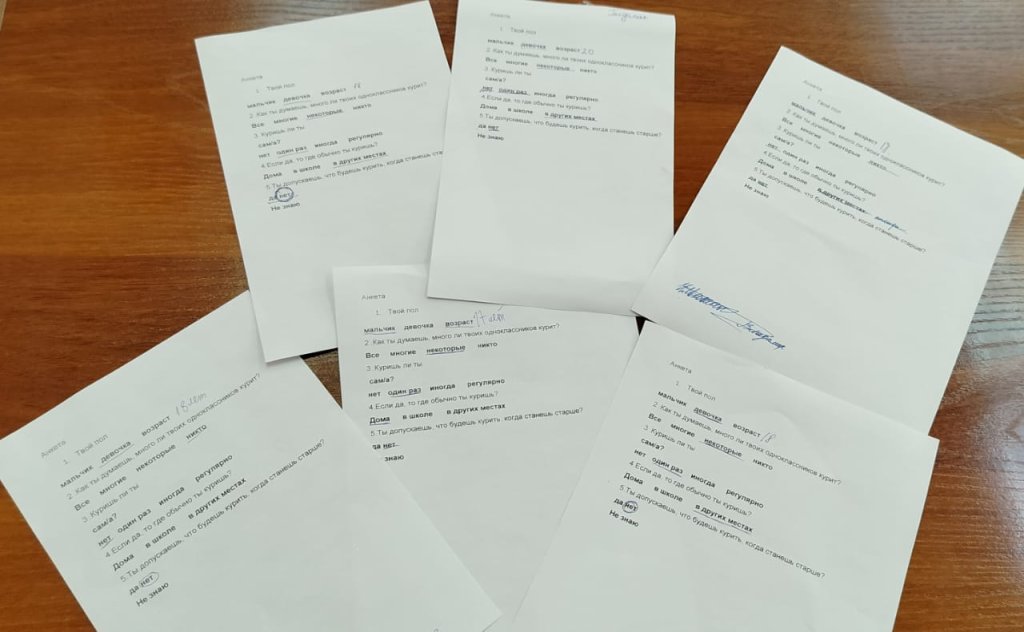 Анкета
1. Твой пол
мальчик девочка возраст 18
2. Как ты думаешь, много ли твоих одноклассников курит?
Все многие некоторые никто
3. Куришь ли ты
сам/а?
нет один раз иногда регулярно
4.Если да, то где обычно ты куришь?
Дома в школе в других местах
5.Ты допускаешь, что будешь курить, когда ста
да нет
Не знаю
Анкета
1. Твой пол
мальчик девочка возраст 20
2. Как ты думаешь, много ли твоих одноклассников курит?
Все многие некоторые никто
3. Куришь ли ты
сам/а?
нет один раз иногда регулярно
4.Если да, то где обычно ты куришь?
Дома в школе в других местах
5.Ты допускаешь, что будешь курить, когда станешь старше?
да нет
Не знаю
Анкета
1. Твой пол
мальчик девочка возраст 18
2. Как ты думаешь, много ли твоих одноклассников курит?
Все многие некоторые никто
3. Куришь ли ты
сам/а?
нет один раз иногда регулярно
4.Если да, то где обычно ты куришь?
Дома в школе в других местах
5.Ты допускаешь, что будешь курить, когда станешь старше?
да нет
Не знаю
Анкета
1. Твой пол
мальчик девочка возраст 18 лет
2. Как ты думаешь, много ли твоих одноклассников курит?
Все многие некоторые никто
3. Куришь ли ты
сам/а?
нет один раз иногда регулярно
4.Если да, то где обычно ты куришь?
Дома в школе в других местах
5.Ты допускаешь, что будешь курить, когда станешь старше?
да нет
Не знаю
Анкета
1. Твой пол
мальчик девочка возраст 17 лет
2. Как ты думаешь, много ли твоих одноклассников курит?
Все многие некоторые никто
3. Куришь ли ты
сам/а?
нет один раз иногда регулярно
4.Если да, то где обычно ты куришь?
Дома в школе в других местах
5.Ты допускаешь, что будешь курить, когда станешь старше?
да нет
знаю
Анкета
1. Твой пол
мальчик девочка возраст 18
2. Как ты думаешь, много ли твоих одноклассников курит?
Все многие некоторые никто
3. Куришь ли ты
сам/а?
нет один раз иногда регулярно
4.Если да, то где обычно ты куришь?
Дома в школе в других местах
5.Ты допускаешь, что будешь курить, когда станешь старше?
да нет
Не знаю